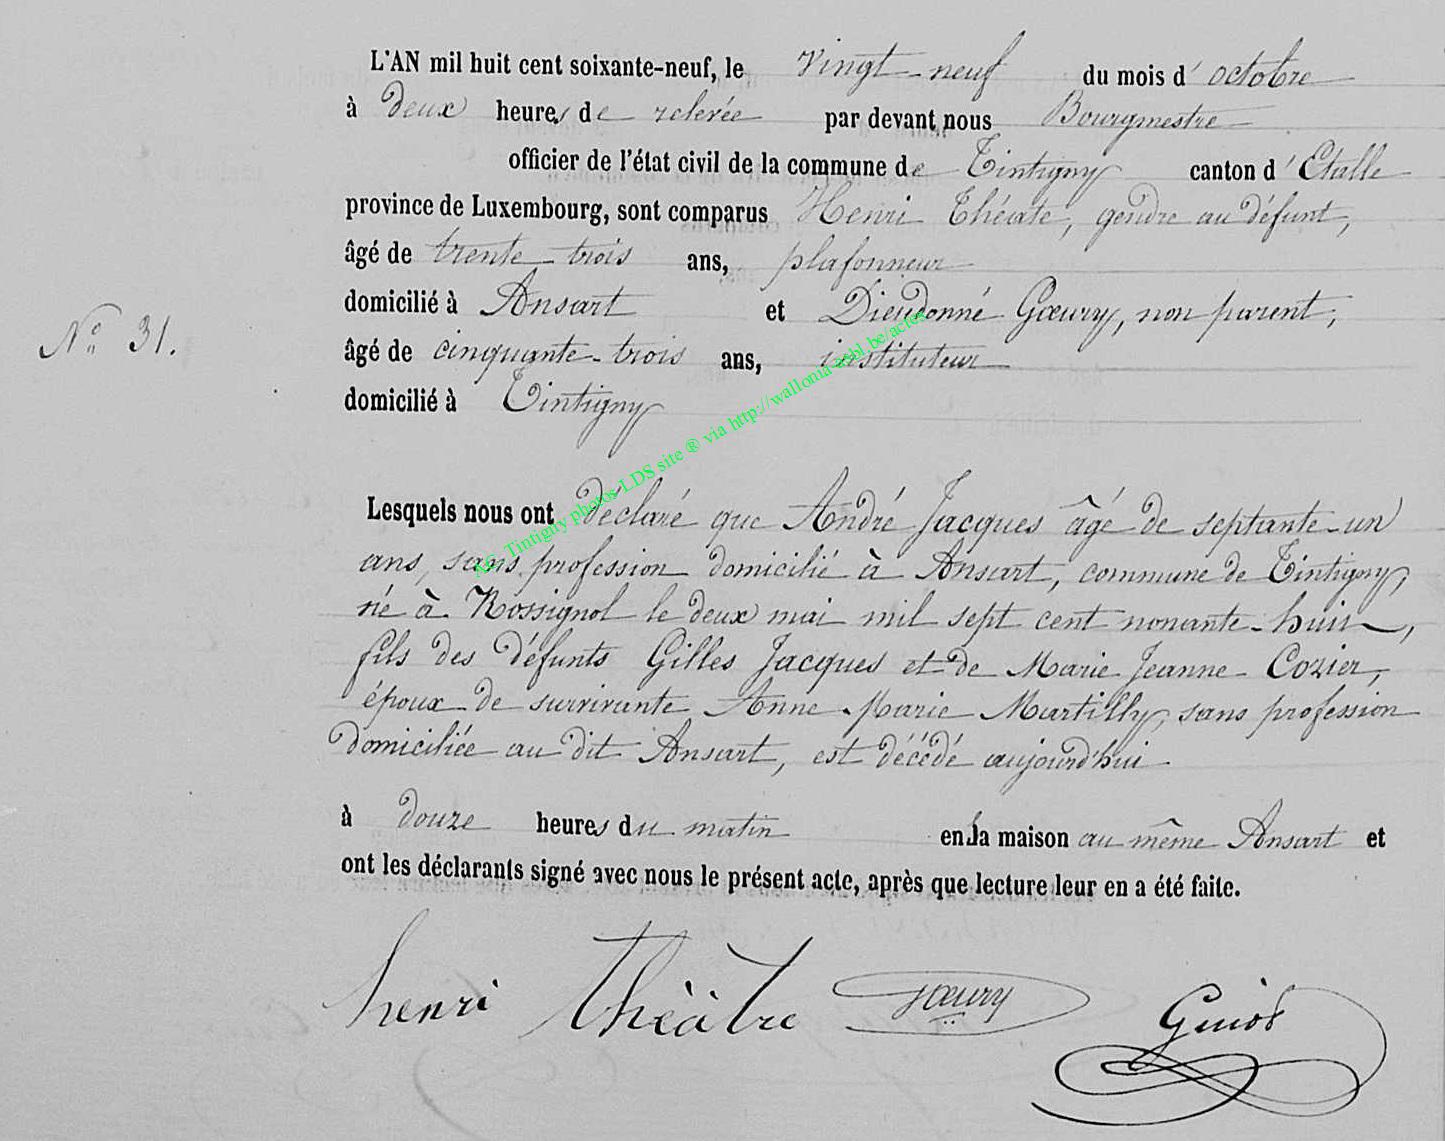 L'AN mil huit cent soixante-neuf, le vingt-neuf du mois d'octobre
à deux heures de relevée par devant nous Bourgmestre
officier de l'état civil de la commune de Tintigny canton d'Etalle
province de Luxembourg, sont comparus Henri Théate, gendre au défunt,
âgé de trente-trois ans, plafonneur
domicilié à Ansart et Dieudonné Gœury, non parent,
N° 31.
âgé de cinquante-trois ans, instituteur
domicilié à Tintigny
AC Tintigny photos-LDS site ® via http://wallonia-asbl.be/actes
Lesquels nous ont déclaré que André Jacques âgé de septante-un
ans, sans profession domicilié à Ansart, commune de Tintigny,
né à Rossignol le deux mai mil sept cent nonante-huit,
fils des défunts Gilles Jacques et de Marie Jeanne Cozier,
époux de survivante Anne-Marie Martilly, sans profession
domiciliée au dit Ansart, est décédé aujourd'hui
à douze heures du matin en sa maison au même Ansart et
ont les déclarants signé avec nous le présent acte, après que lecture leur en a été faite.
henri thèâtre Gœury Guiot